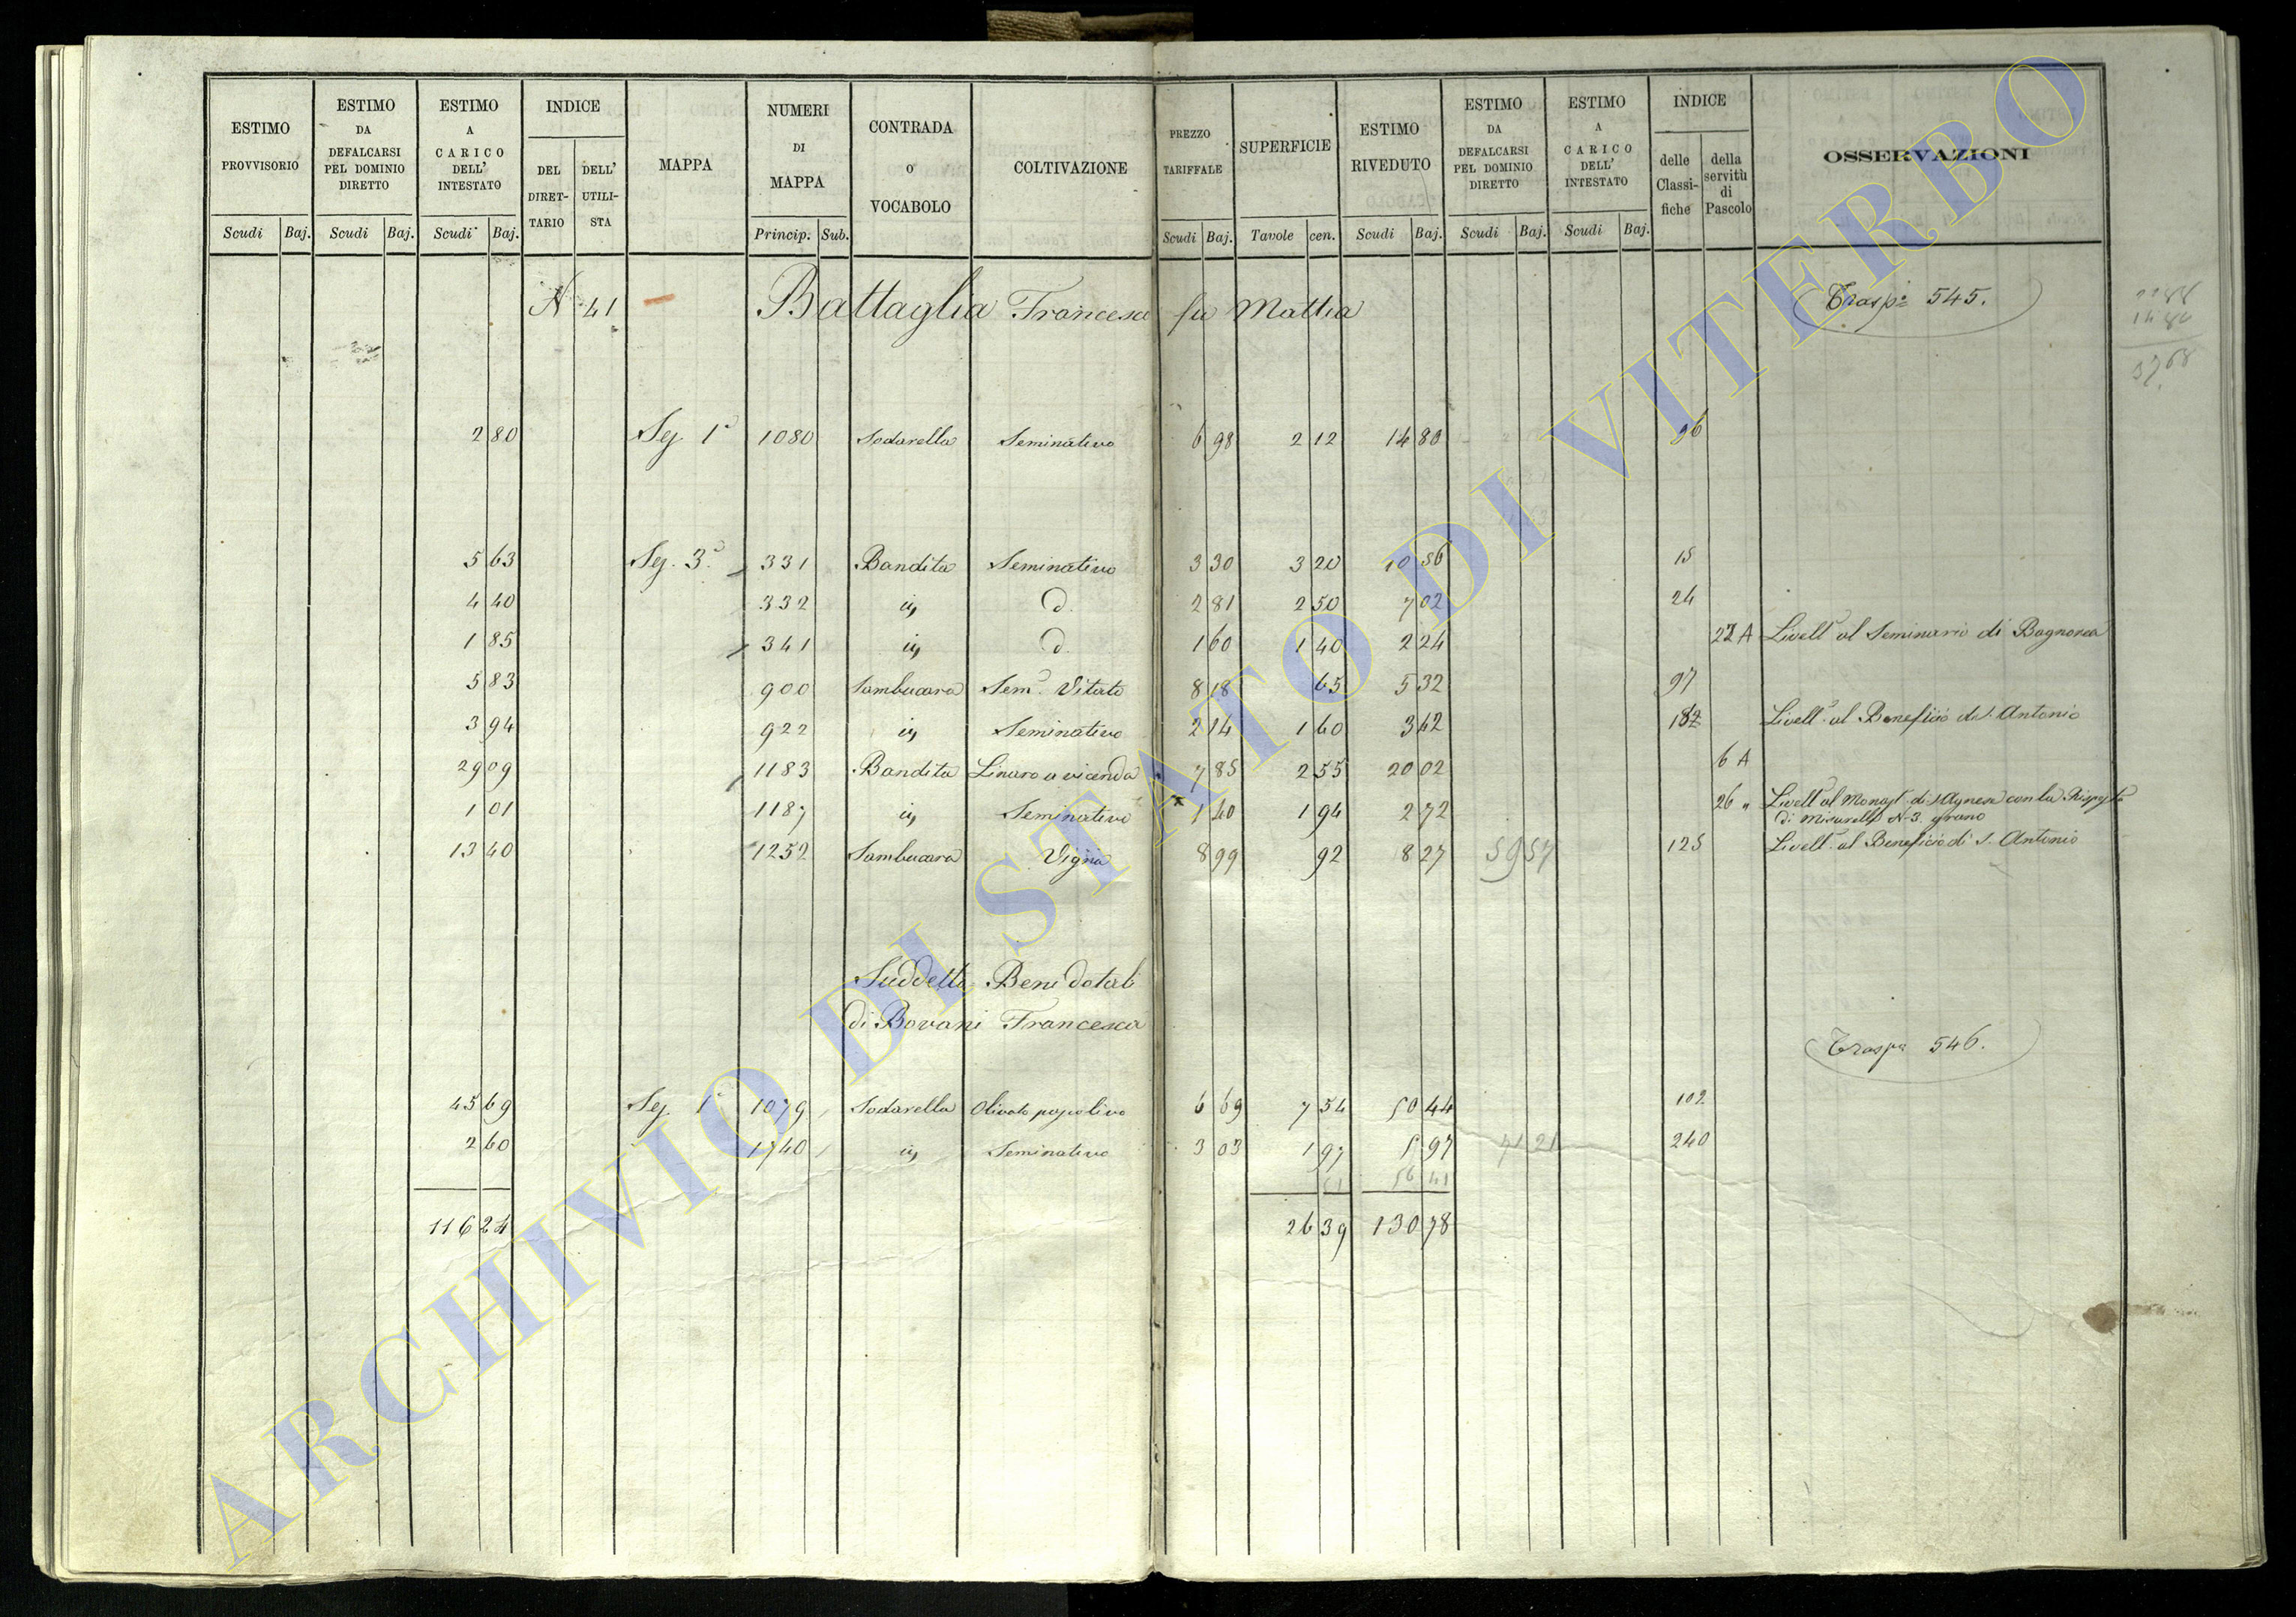 ESTIMO PROVVISORIO Scudi Baj.
ESTIMO DA DEFALCARSI PEL DOMINIO DIRETTO Scudi Baj.
ESTIMO A CARICO DELL' INTESTATO Scudi Baj.
INDICE DEL DIRET- TARIO DELL' UTILI- STA
MAPPA
NUMERI DI MAPPA Princip. Sub.
CONTRADA O VOCABOLO
COLTIVAZIONE
PREZZO TARIFFALE Scudi Baj.
SUPERFICIE Tavole cen.
ESTIMO RIVEDUTO Scudi Baj.
ESTIMO DA DEFALCARSI PEL DOMINIO DIRETTO Scudi Baj.
ESTIMO A CARICO DELL' INTESTATO Scudi Baj.
INDICE delle Classi- fiche della servitù di Pascolo
OSSERVAZIONI
N. 41 Battaglia Francesco fu Mattia Trasp. 545.
2 80 Sez. 1ª 1080 Sodarella Seminativo 6 98 2 12 14 80 96
5 63 Sez. 3ª 331 Bandita Seminativo 3 30 3 20 10 56 15
4 40 332 id. d. 2 81 2 50 7 02 24
1 85 341 id. d. 1 60 1 40 2 24 22 A Livell. al Seminario di Bagnorea
5 83 900 Sambucara Sem. Vitato 8 18 65 5 32 97
3 94 922 id. Seminativo 2 14 1 60 3 42 182 Livell. al Beneficio di S. Antonio
29 09 1183 Bandita Linaro a vicenda 7 85 2 55 20 02 6 A
1 01 1187 id. Seminativo 1 40 1 94 2 72 26 " Livell. al Monast. di S. Agnese con la Risposta
di Misurelle N. 3 grano
13 40 1252 Sambucara Vigna 8 99 92 8 27 59 57 125 Livell. al Beneficio di S. Antonio
Suddetto Beni dotali
di Bovani Francesca
Trasp. 546.
45 69 Sez. 1ª 1079 Sodarella Olivato pascolivo 6 69 7 54 50 44 102
2 60 1740 id. Seminativo 3 03 1 97 5 97 71 21 240
56 41
116 24 26 39 130 78
ARCHIVIO DI STATO DI VITERBO